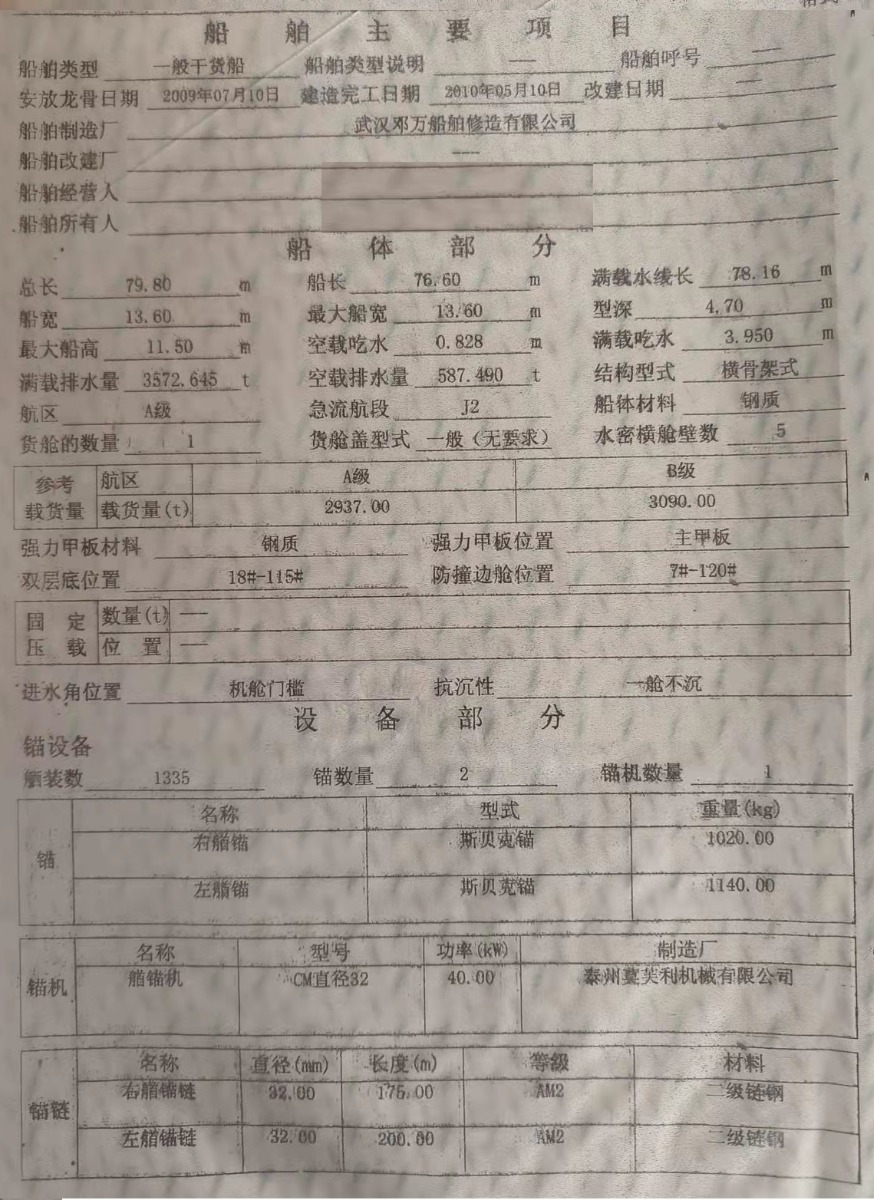 船舶主要项目
船舶类型 一般干货船 船舶类型说明 — 船舶呼号 —
安放龙骨日期 2009年07月10日 建造完工日期 2010年05月10日 改建日期 —
船舶制造厂 武汉邓万船舶修造有限公司
船舶改建厂 —
船舶经营人
船舶所有人
船体部分
总长 79.80 m 船长 76.60 m 满载水线长 78.16 m
船宽 13.60 m 最大船宽 13.60 m 型深 4.70 m
最大船高 11.50 m 空载吃水 0.828 m 满载吃水 3.950 m
满载排水量 3572.645 t 空载排水量 587.490 t 结构型式 横骨架式
航区 A级 急流航段 J2 船体材料 钢质
货舱的数量 1 货舱盖型式 一般(无要求) 水密横舱壁数 5
参考 航区 A级 B级
载货量 载货量(t) 2937.00 3090.00
强力甲板材料 钢质 强力甲板位置 主甲板
双层底位置 18#-115# 防撞边舱位置 7#-120#
固定 数量(t) —
压载 位置 —
进水角位置 机舱门槛 抗沉性 一舱不沉
设备部分
锚设备
舾装数 1335 锚数量 2 锚机数量 1
锚 名称 型式 重量(kg)
右艏锚 斯贝克锚 1020.00
左艏锚 斯贝克锚 1140.00
名称 型号 功率(kW) 制造厂
锚机 艏锚机 CM直径32 40.00 泰州蔓芙利机械有限公司
名称 直径(mm) 长度(m) 等级 材料
锚链 右艏锚链 32.00 175.00 AM2 二级链钢
左艏锚链 32.00 200.00 AM2 二级链钢